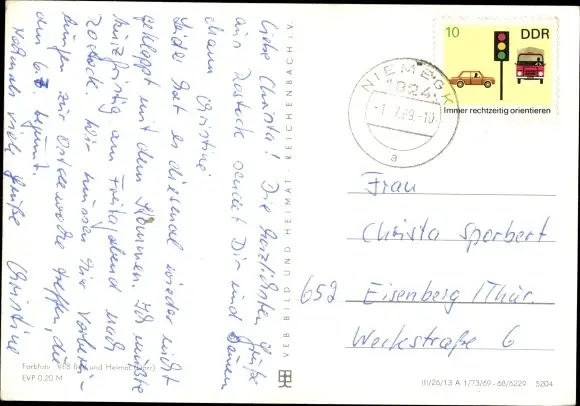 Liebe Christa! Die herzlichsten Grüße
aus Rostock sendet Dir und Deinem
Mann Christine.
Leider hat es diesmal wieder nicht
geklappt mit dem Kommen. Ich mußte
kurzfristig am Freitagabend nach
Rostock. Wir müssen die Vorberei-
tungen zur Ostseewoche treffen, die
am 6.7. beginnt.
Nochmals viele Grüße Christine
Farbfoto: VEB Bild und Heimat
EVP 0,20 M
VEB BILD UND HEIMAT · REICHENBACH i. V.
10 DDR
Immer rechtzeitig orientieren
NIEMEGK
1824
-1.7.69.-10
a
Frau
Christa Sperbert
652 Eisenberg/Thür.
Werkstraße 6
III/26/13 A 1/73/69 - 68/6229 S204